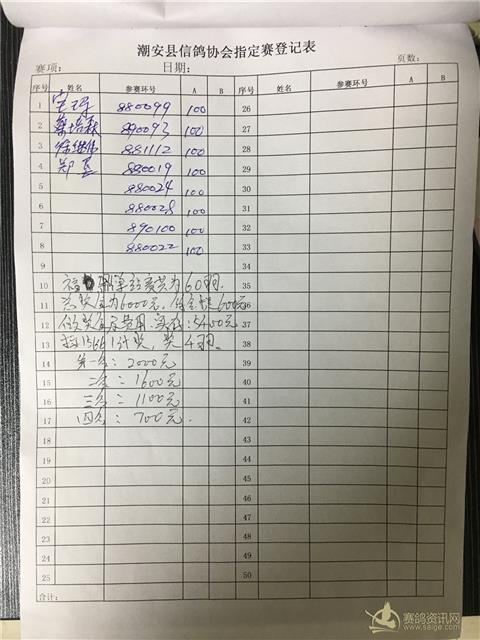 潮安县信鸽协会指定赛登记表
赛项: 日期: 页数:
序号 姓名 参赛环号 A B 序号 姓名 参赛环号 A B
1 880099 100 26
2 蔡培森 890093 100 27
3 徐继伟 881112 100 28
4 郑 880019 100 29
5 880024 100 30
6 880028 100 31
7 890100 100 32
8 880022 100 33
9 34
10 福鼎 赛共为60羽 35
11 总收金为6000元, 600元 36
12 做奖 费用,实存:5400元 37
13 按 计奖,奖4羽。 38
14 第一名:2000元 39
15 二名:1600元 40
16 三名:1100元 41
17 四名:700元. 42
18 43
19 44
20 45
21 46
22 47
23 48
24 49
25 50
合计:
赛鸽资讯网
www.saige.com